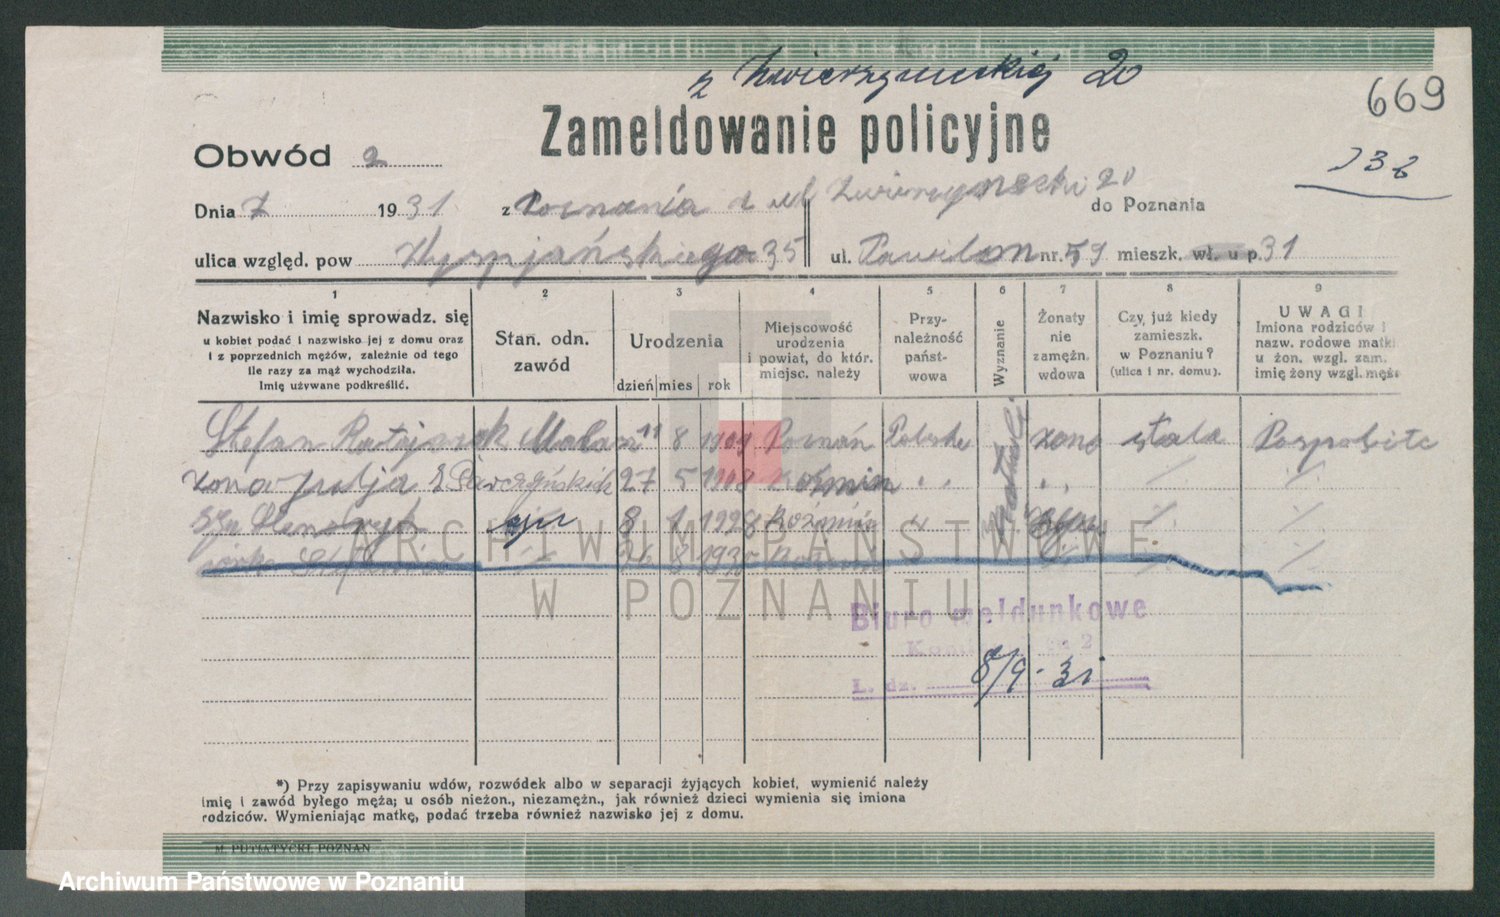 z Zwierzynieckiej 20
669
Zameldowanie policyjne
Obwód 2
Dnia 7 1931 z Poznania z ul Zwierzyniecki 20 do Poznania
ulica względ. pow Wyspjańskiego 35 ul. Pawilon nr. 59 mieszk. wł. u p. 31
1 2 3 4 5 6 7 8 9
Nazwisko i imię sprowadz. się
u kobiet podać i nazwisko jej z domu oraz
i z poprzednich mężów, zależnie od tego
ile razy za mąż wychodziła.
Imię używane podkreślić.
Stan. odn.
zawód
Urodzenia
dzień mies rok
Miejscowość
urodzenia
i powiat, do któr.
miejsc. należy
Przy-
należność
państ-
wowa
Wyznanie
Żonaty
nie
zamężn.
wdowa
Czy, już kiedy
zamieszk.
w Poznaniu?
(ulica i nr. domu).
UWAGI
Imiona rodziców i
nazw. rodowe matki
u żon. wzgl. zam.
imię żony wzgl. męża
Stefan Ratajczak 11 8 1909 Poznań Polska żona stale
żona 27 5 1908 Koźmin
syn 8 1 1928 Koźmin
8 1930
ARCHIWUM PAŃSTWOWE
W POZNANIU
Biuro meldunkowe
L. dz.
8/9 - 31
*) Przy zapisywaniu wdów, rozwódek albo w separacji żyjących kobiet, wymienić należy
imię i zawód byłego męża; u osób nieżon., niezamężn., jak również dzieci wymienia się imiona
rodziców. Wymieniając matkę, podać trzeba również nazwisko jej z domu.
M. PUTIATYCKI, POZNAN
Archiwum Państwowe w Poznaniu